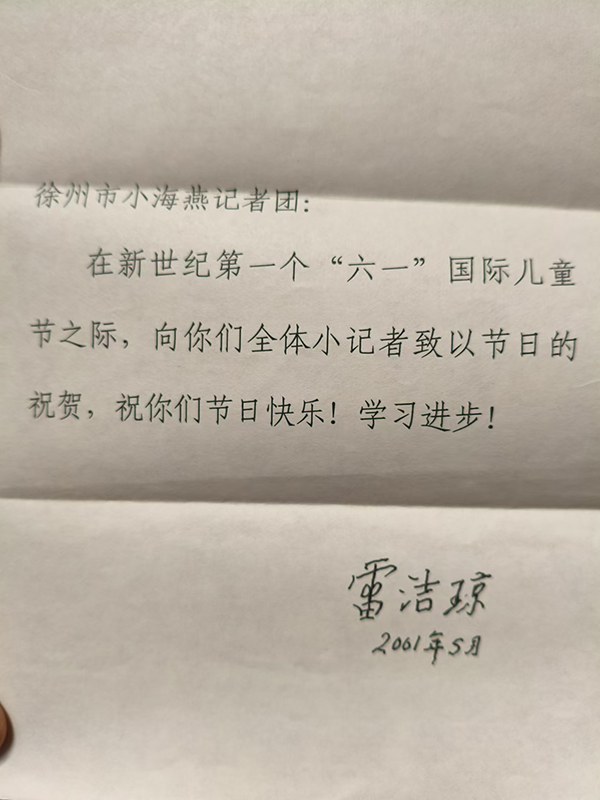 徐州市小海燕记者团：
在新世纪第一个“六一”国际儿童
节之际，向你们全体小记者致以节日的
祝贺，祝你们节日快乐！学习进步！
雷洁琼
2001年5月